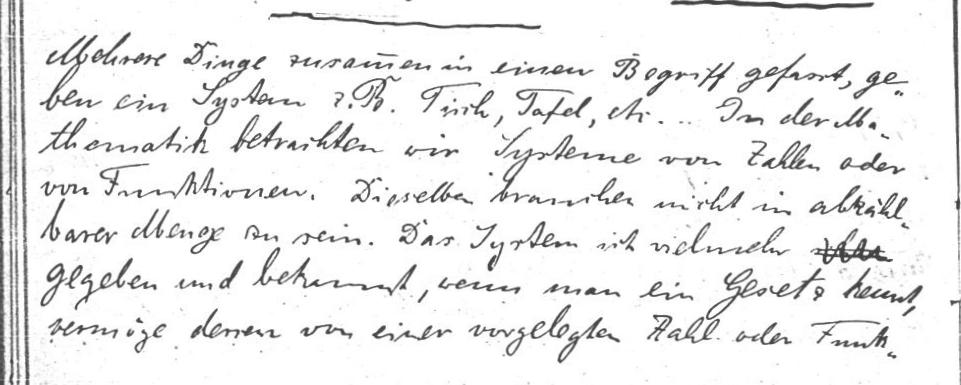 Mehrere Dinge zusam̄en in einen Begriff gefasst, ge-
ben ein System z. B. Tisch, Tafel, etc... In der Ma-
thematik betrachten wir Systeme von Zahlen oder
von Funktionen. Dieselben brauchen nicht in abzähl-
barer Menge zu sein. Das System ist vielmehr
gegeben und bekannt, wenn man ein Gesetz kennt,
vermöge dessen von einer vorgelegten Zahl oder Funk-